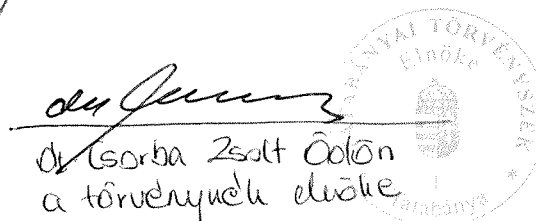 dr Csorba Zsolt Ödön
a törvényszék elnöke
TATABÁNYAI TÖRVÉNYSZÉK *
Elnöke
Tatabánya